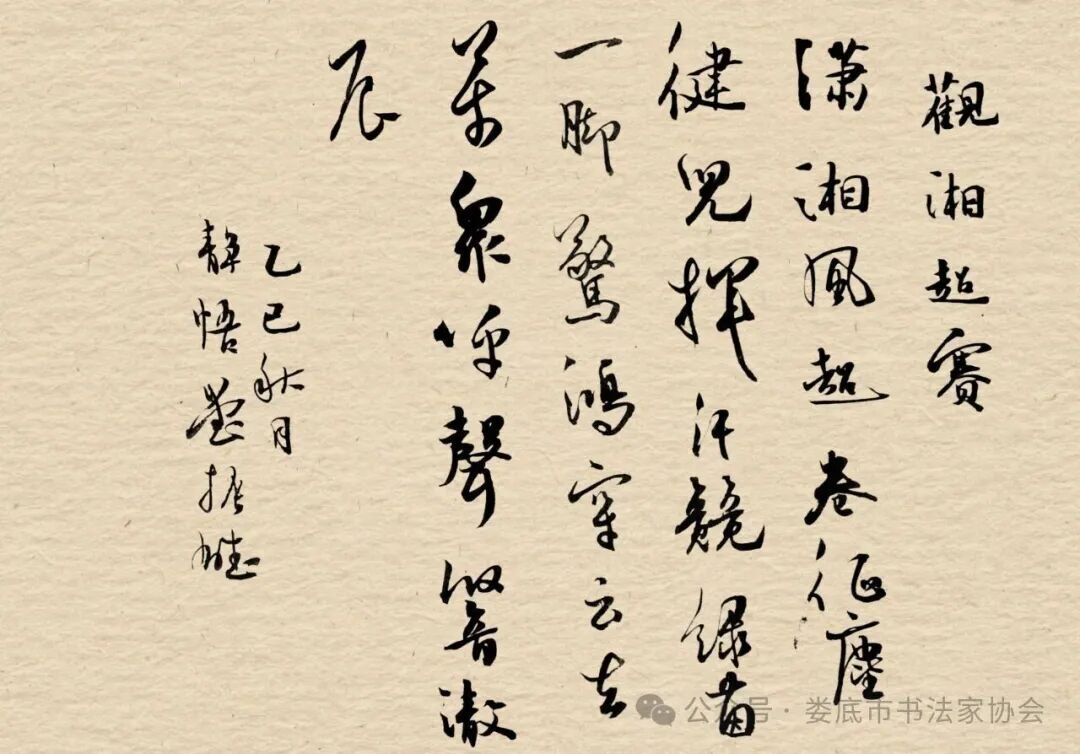 觀湘超賽
潇湘風起卷征塵
健兒揮汗競绿茵
一脚驚鴻穿云去
萬衆呼聲響澈
辰
乙巳秋月
静悟堂振雄
公众号·娄底市书法家协会